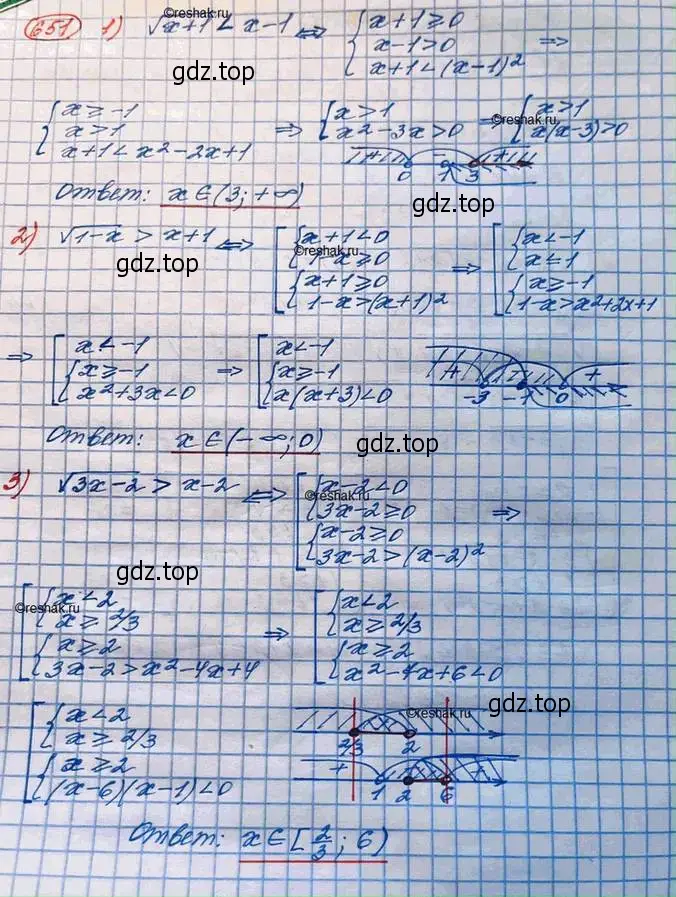 651 1) √x+1 < x-1 ⇔ { x+1≥0
x-1>0
x+1<(x-1)² ⇒
©reshak.ru
gdz.top
{ x≥-1
x>1
x+1<x²-2x+1
⇒ { x>1
x²-3x>0
⇒ { x>1
x(x-3)>0
©reshak.ru
+ + 0 1 3
Ответ: x∈(3;+∞)
gdz.top
2) √1-x > x+1 ⇔ [ { x+1<0
1-x≥0
{ x+1≥0
1-x>(x+1)²
⇒ [ { x<-1
x≤1
{ x≥-1
1-x>x²+2x+1
©reshak.ru
gdz.top
⇒ [ x<-1
{ x≥-1
x²+3x<0
⇒ [ x<-1
{ x≥-1
x(x+3)<0
+ + -3 -1 0
Ответ: x∈(-∞;0)
gdz.top
3) √3x-2 > x-2 ⇔ [ { x-2<0
3x-2≥0
{ x-2≥0
3x-2>(x-2)² ⇒
©reshak.ru
gdz.top
[ { x<2
x≥2/3
{ x≥2
3x-2>x²-4x+4
⇒ [ { x<2
x≥2/3
{ x≥2
x²-7x+6<0
©reshak.ru
gdz.top
[ { x<2
x≥2/3
{ x≥2
(x-6)(x-1)<0
©reshak.ru
2/3 2
+ + 1 2 6
Ответ: x∈[2/3; 6)
gdz.top